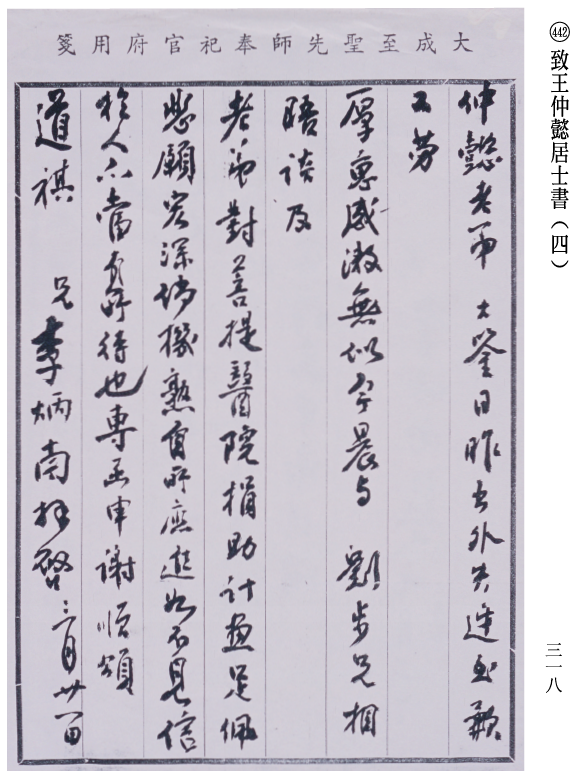 ㊷ 致王仲懿居士書（四）
三一八
大成至聖先師奉祀官府用箋
仲懿老弟 大鑒日昨出外失迓至歉
又勞
厚惠感激無似今晨与 劉步兄相
晤談及
老弟對菩提醫院捐助計畫足佩
悲願宏深倘機熟自所應進如不見信
於人亦當有所待也專函申謝順頌
道祺 兄李炳南拜啓 月廿